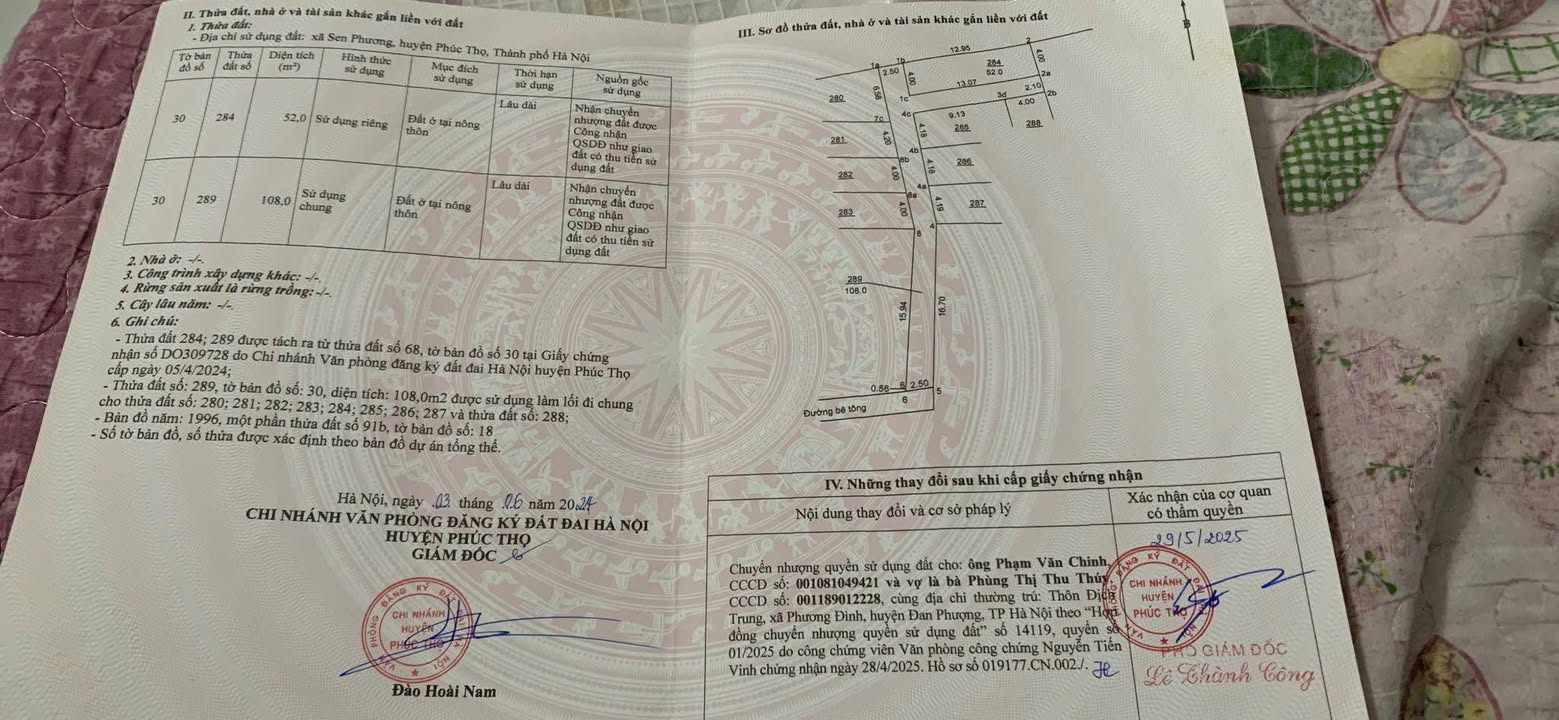 II. Thửa đất, nhà ở và tài sản khác gắn liền với đất
1. Thửa đất:
- Địa chỉ sử dụng đất: xã Sen Phương, huyện Phúc Thọ, Thành phố Hà Nội
Tờ bản đồ số | Thửa đất số | Diện tích (m²) | Hình thức sử dụng | Mục đích sử dụng | Thời hạn sử dụng | Nguồn gốc sử dụng
30 | 284 | 52,0 | Sử dụng riêng | Đất ở tại nông thôn | Lâu dài | Nhận chuyển nhượng đất được Công nhận QSDĐ như giao đất có thu tiền sử dụng đất
30 | 289 | 108,0 | Sử dụng chung | Đất ở tại nông thôn | Lâu dài | Nhận chuyển nhượng đất được Công nhận QSDĐ như giao đất có thu tiền sử dụng đất
2. Nhà ở: -/-.
3. Công trình xây dựng khác: -/-.
4. Rừng sản xuất là rừng trồng: -/-.
5. Cây lâu năm: -/-.
6. Ghi chú:
- Thửa đất 284; 289 được tách ra từ thửa đất số 68, tờ bản đồ số 30 tại Giấy chứng
nhận số DO309728 do Chi nhánh Văn phòng đăng ký đất đai Hà Nội huyện Phúc Thọ
cấp ngày 05/4/2024;
- Thửa đất số: 289, tờ bản đồ số: 30, diện tích: 108,0m2 được sử dụng làm lối đi chung
cho thửa đất số: 280; 281; 282; 283; 284; 285; 286; 287 và thửa đất số: 288;
- Bản đồ năm: 1996, một phần thửa đất số 91b, tờ bản đồ số: 18
- Số tờ bản đồ, số thửa được xác định theo bản đồ dự án tổng thể.
Hà Nội, ngày 03 tháng 06 năm 2024
CHI NHÁNH VĂN PHÒNG ĐĂNG KÝ ĐẤT ĐAI HÀ NỘI
HUYỆN PHÚC THỌ
GIÁM ĐỐC
VĂN PHÒNG ĐĂNG KÝ ĐẤT ĐAI HÀ NỘI
CHI NHÁNH
HUYỆN
PHÚC THỌ
Đào Hoài Nam
III. Sơ đồ thửa đất, nhà ở và tài sản khác gắn liền với đất
B
12.95
2
1a
1b
2.50
4.00
284
52.0
4.00
13.07
2a
280
6.58
1c
3d
2.10
2b
4.00
7c
4c
9.13
288
281
4.20
4.18
285
4b
8b
282
4.00
4.18
286
4a
8a
283
4.00
4.19
287
4
8
289
108.0
15.94
16.70
0.56
6
2.50
5
6
Đường bê tông
IV. Những thay đổi sau khi cấp giấy chứng nhận
Nội dung thay đổi và cơ sở pháp lý
Xác nhận của cơ quan
có thẩm quyền
29/5/2025
Chuyển nhượng quyền sử dụng đất cho: ông Phạm Văn Chinh,
CCCD số: 001081049421 và vợ là bà Phùng Thị Thu Thúy,
CCCD số: 001189012228, cùng địa chỉ thường trú: Thôn Địch
Trung, xã Phương Đình, huyện Đan Phượng, TP Hà Nội theo “Hợp
đồng chuyển nhượng quyền sử dụng đất” số 14119, quyển số
01/2025 do công chứng viên Văn phòng công chứng Nguyễn Tiến
Vinh chứng nhận ngày 28/4/2025. Hồ sơ số 019177.CN.002./.
VĂN PHÒNG ĐĂNG KÝ ĐẤT ĐAI HÀ NỘI
CHI NHÁNH
HUYỆN
PHÚC THỌ
PHÓ GIÁM ĐỐC
Lê Thành Công